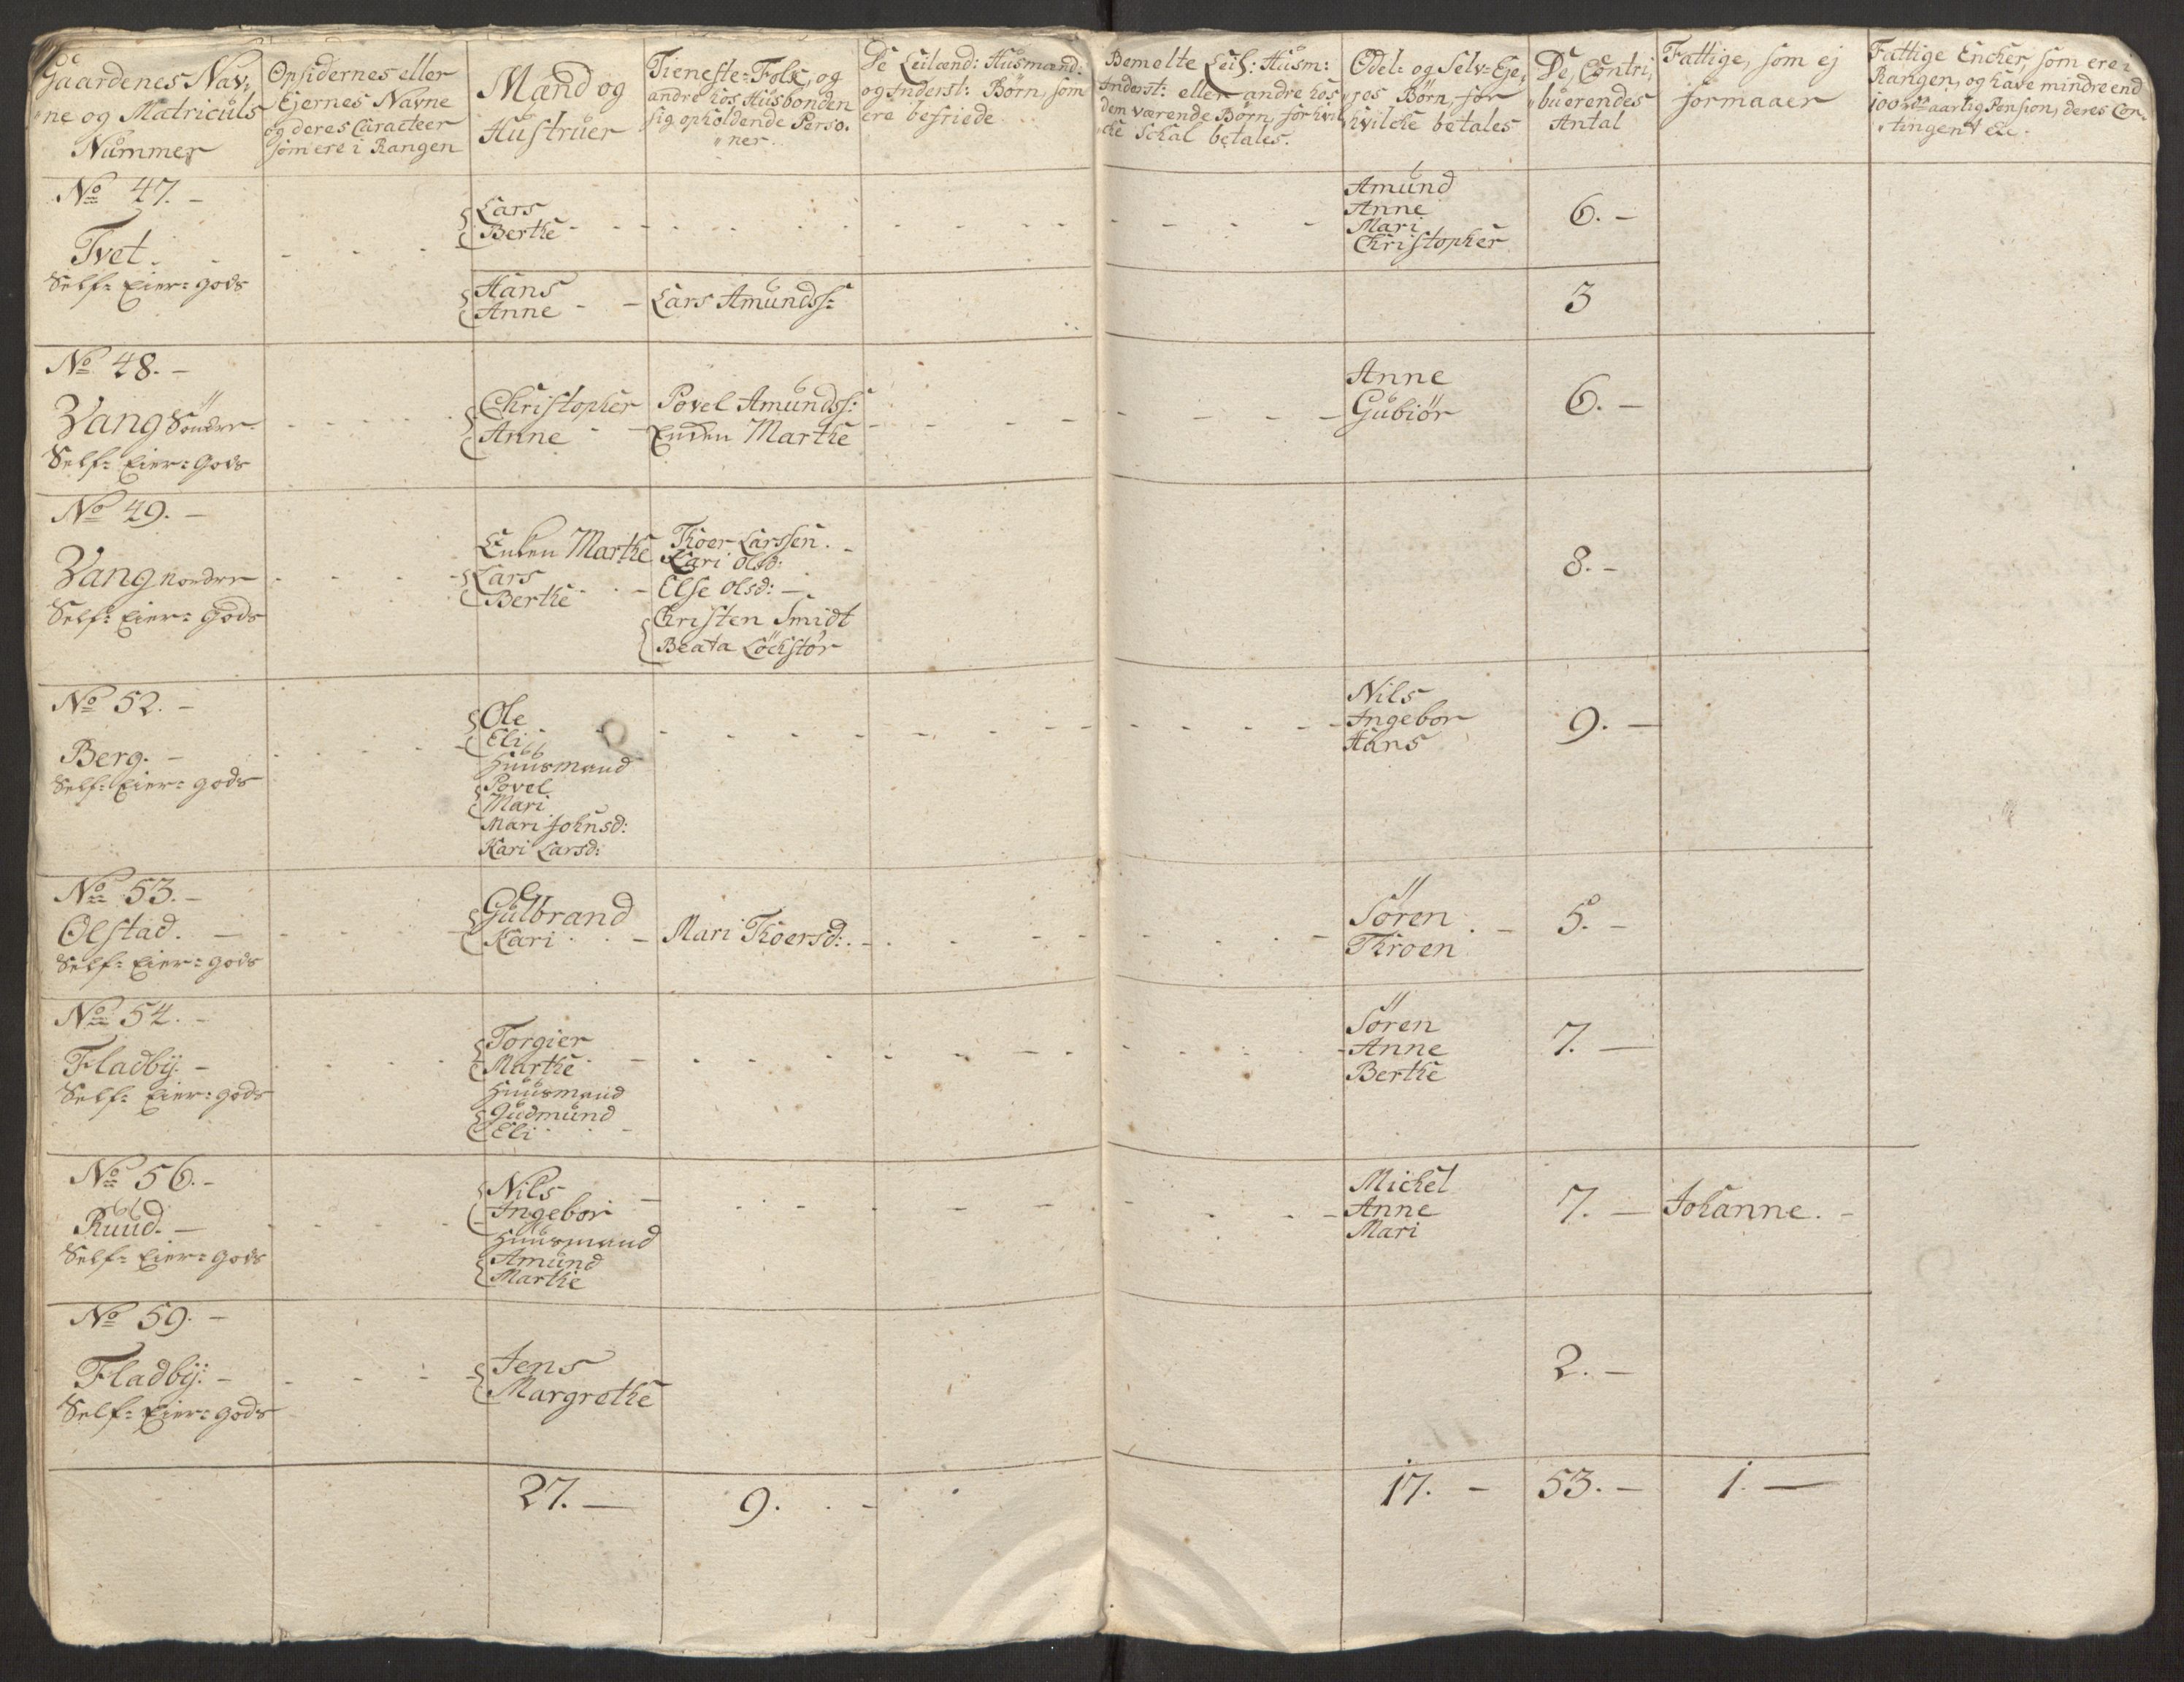 Gaardenes Nav,,
,,ne og Matriculs
Nummer
Opsidernes eller
Ejernes Navne
og deres Caracteer
som ere i Rangen
Mænd og
Hustruer
Tieneste-Folk, og
andre hos Husbonden
sig opholdende Perso,,
,,ner
De Leilænd: Husmænd:
og Inderst: Børn, som
ere befriede
Bemelte Leil: Husm:
Inderst: eller andre hos
dem værende Børn, for hvil
,,cke schal betales.
Odel- og Selv-Eje,,
,,res Børn, for
hvilcke betales
De Contri,,
,,buerendes
Antal
Fattige, som ej
formaaer
Fattige Encker, som ere i
Rangen, og have mindre end
100 Rdr aarlig Pension, deres Con,,
,,tingent etc.
No 47. -
Tvet.
Self- Eier- gods
Lars
Berthe
Amund
Anne
Mari
Christopher
6. -
Hans
Anne
Lars Amundss:
3
No 48. -
Vang Søndre
Self- Eier- Gods
Christopher
Anne
Povel Amundss:
Enken Marthe
Anne
Gubiör
6. -
No 49. -
Vang Nordre
Self- Eier- Gods
Enken Marthe
Lars
Berthe
Thoer Larssen.
Kari Olsd:
Else Olsd: -
Christen Smidt
Beata Löchstör
8. -
No 52. -
Berg. -
Self- Eier- gods
Ole
Eli
Huusmand
Povel
Mari
Mari Johnsd:
Kari Larsd:
Nils
Ingebor
Hans
9. -
No 53. -
Olstad. -
Self- Eier- gods
Gulbrand
Kari
Mari Thoersd:
Sören
Throen
5. -
No 54. -
Fladbÿ. -
Self- Eier- gods
Torgier
Marthe
Huusmand
Gudmund
Eli
Sören
Anne
Berthe
7. -
No 56. -
Ruud. -
Self- Eier- gods
Nils
Ingebor
Huusmand
Amund
Marthe
Michel
Anne
Mari
7. -
Johanne. -
No 59. -
Fladbÿ. -
Self- Eier- gods
Jens
Margrethe
2. -
27. -
9. -
17. -
53. -
1. -